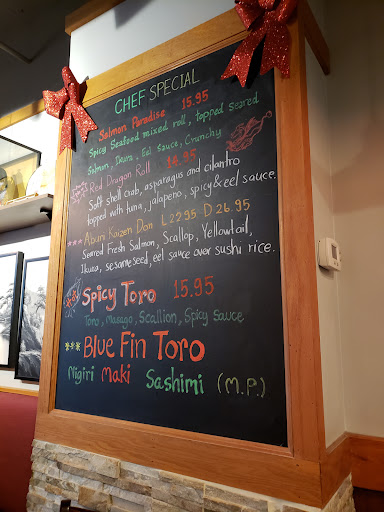 CHEF SPECIAL
Salmon Paradise 15.95
Spicy Seafood mixed roll, topped seared
Salmon, Sauce, Eel Sauce, Crunchy
Red Dragon Roll 16.95
Soft shell crab, asparagus and cilantro
topped with tuna, jalapeno, spicy & eel sauce.
*** Aburi Kaizen Don L 22.95 - D 26.95
Seared Fresh Salmon, Scallop, Yellowtail,
Ikura, sesame seed, eel sauce over sushi rice.
Spicy Toro 15.95
Toro, Masago, Scallion, Spicy Sauce
*** Blue Fin Toro
Nigiri Maki Sashimi (M.P.)